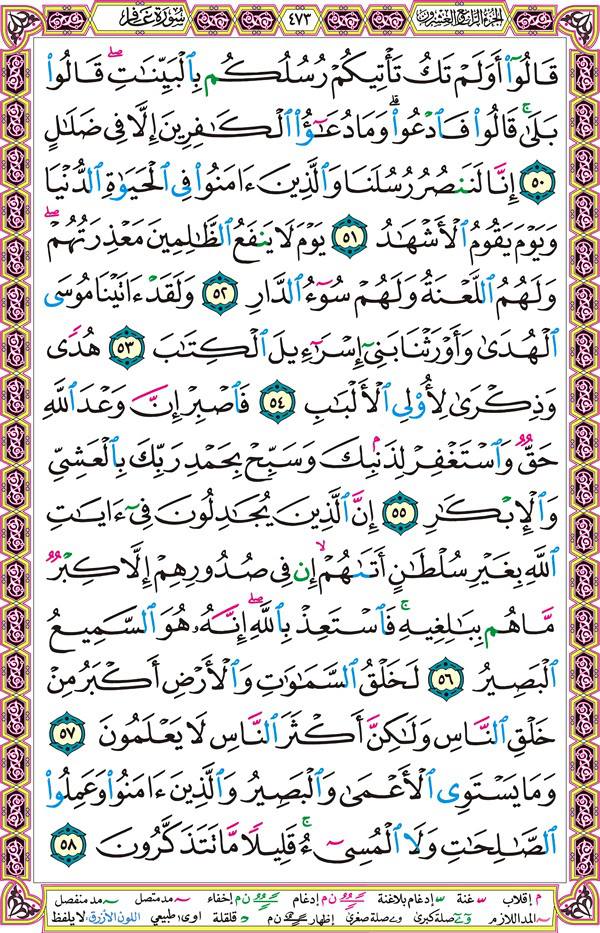 سورة غافر
٤٧٣
الجزء الرابع والعشرون
قَالُوٓا۟ أَوَلَمْ تَكُ تَأْتِيكُمْ رُسُلُكُم بِٱلْبَيِّنَٰتِ ۖ قَالُوا۟
بَلَىٰ ۚ قَالُوا۟ فَٱدْعُوا۟ ۗ وَمَا دُعَٰٓؤُا۟ ٱلْكَٰفِرِينَ إِلَّا فِى ضَلَٰلٍ
٥٠ إِنَّا لَنَنصُرُ رُسُلَنَا وَٱلَّذِينَ ءَامَنُوا۟ فِى ٱلْحَيَوٰةِ ٱلدُّنْيَا
وَيَوْمَ يَقُومُ ٱلْأَشْهَٰدُ ٥١ يَوْمَ لَا يَنفَعُ ٱلظَّٰلِمِينَ مَعْذِرَتُهُمْ ۖ
وَلَهُمُ ٱللَّعْنَةُ وَلَهُمْ سُوٓءُ ٱلدَّارِ ٥٢ وَلَقَدْ ءَاتَيْنَا مُوسَى
ٱلْهُدَىٰ وَأَوْرَثْنَا بَنِىٓ إِسْرَٰٓءِيلَ ٱلْكِتَٰبَ ٥٣ هُدًى
وَذِكْرَىٰ لِأُو۟لِى ٱلْأَلْبَٰبِ ٥٤ فَٱصْبِرْ إِنَّ وَعْدَ ٱللَّهِ
حَقٌّ وَٱسْتَغْفِرْ لِذَنۢبِكَ وَسَبِّحْ بِحَمْدِ رَبِّكَ بِٱلْعَشِىِّ
وَٱلْإِبْكَٰرِ ٥٥ إِنَّ ٱلَّذِينَ يُجَٰدِلُونَ فِىٓ ءَايَٰتِ
ٱللَّهِ بِغَيْرِ سُلْطَٰنٍ أَتَىٰهُمْ ۙ إِن فِى صُدُورِهِمْ إِلَّا كِبْرٌ
مَّا هُم بِبَٰلِغِيهِ ۚ فَٱسْتَعِذْ بِٱللَّهِ ۖ إِنَّهُۥ هُوَ ٱلسَّمِيعُ
ٱلْبَصِيرُ ٥٦ لَخَلْقُ ٱلسَّمَٰوَٰتِ وَٱلْأَرْضِ أَكْبَرُ مِنْ
خَلْقِ ٱلنَّاسِ وَلَٰكِنَّ أَكْثَرَ ٱلنَّاسِ لَا يَعْلَمُونَ ٥٧
وَمَا يَسْتَوِى ٱلْأَعْمَىٰ وَٱلْبَصِيرُ وَٱلَّذِينَ ءَامَنُوا۟ وَعَمِلُوا۟
ٱلصَّٰلِحَٰتِ وَلَا ٱلْمُسِىٓءُ ۚ قَلِيلًا مَّا تَتَذَكَّرُونَ ٥٨
م إقلاب غنة إدغام بلاغنة ن م إدغام ن م إخفاء مد متصل مد منفصل
المد اللازم و ے صلة كبرى و ے صلة صغرى إظهار ن م قلقلة اوى؛ طبيعي اللون الأزرق: لا يلفظ